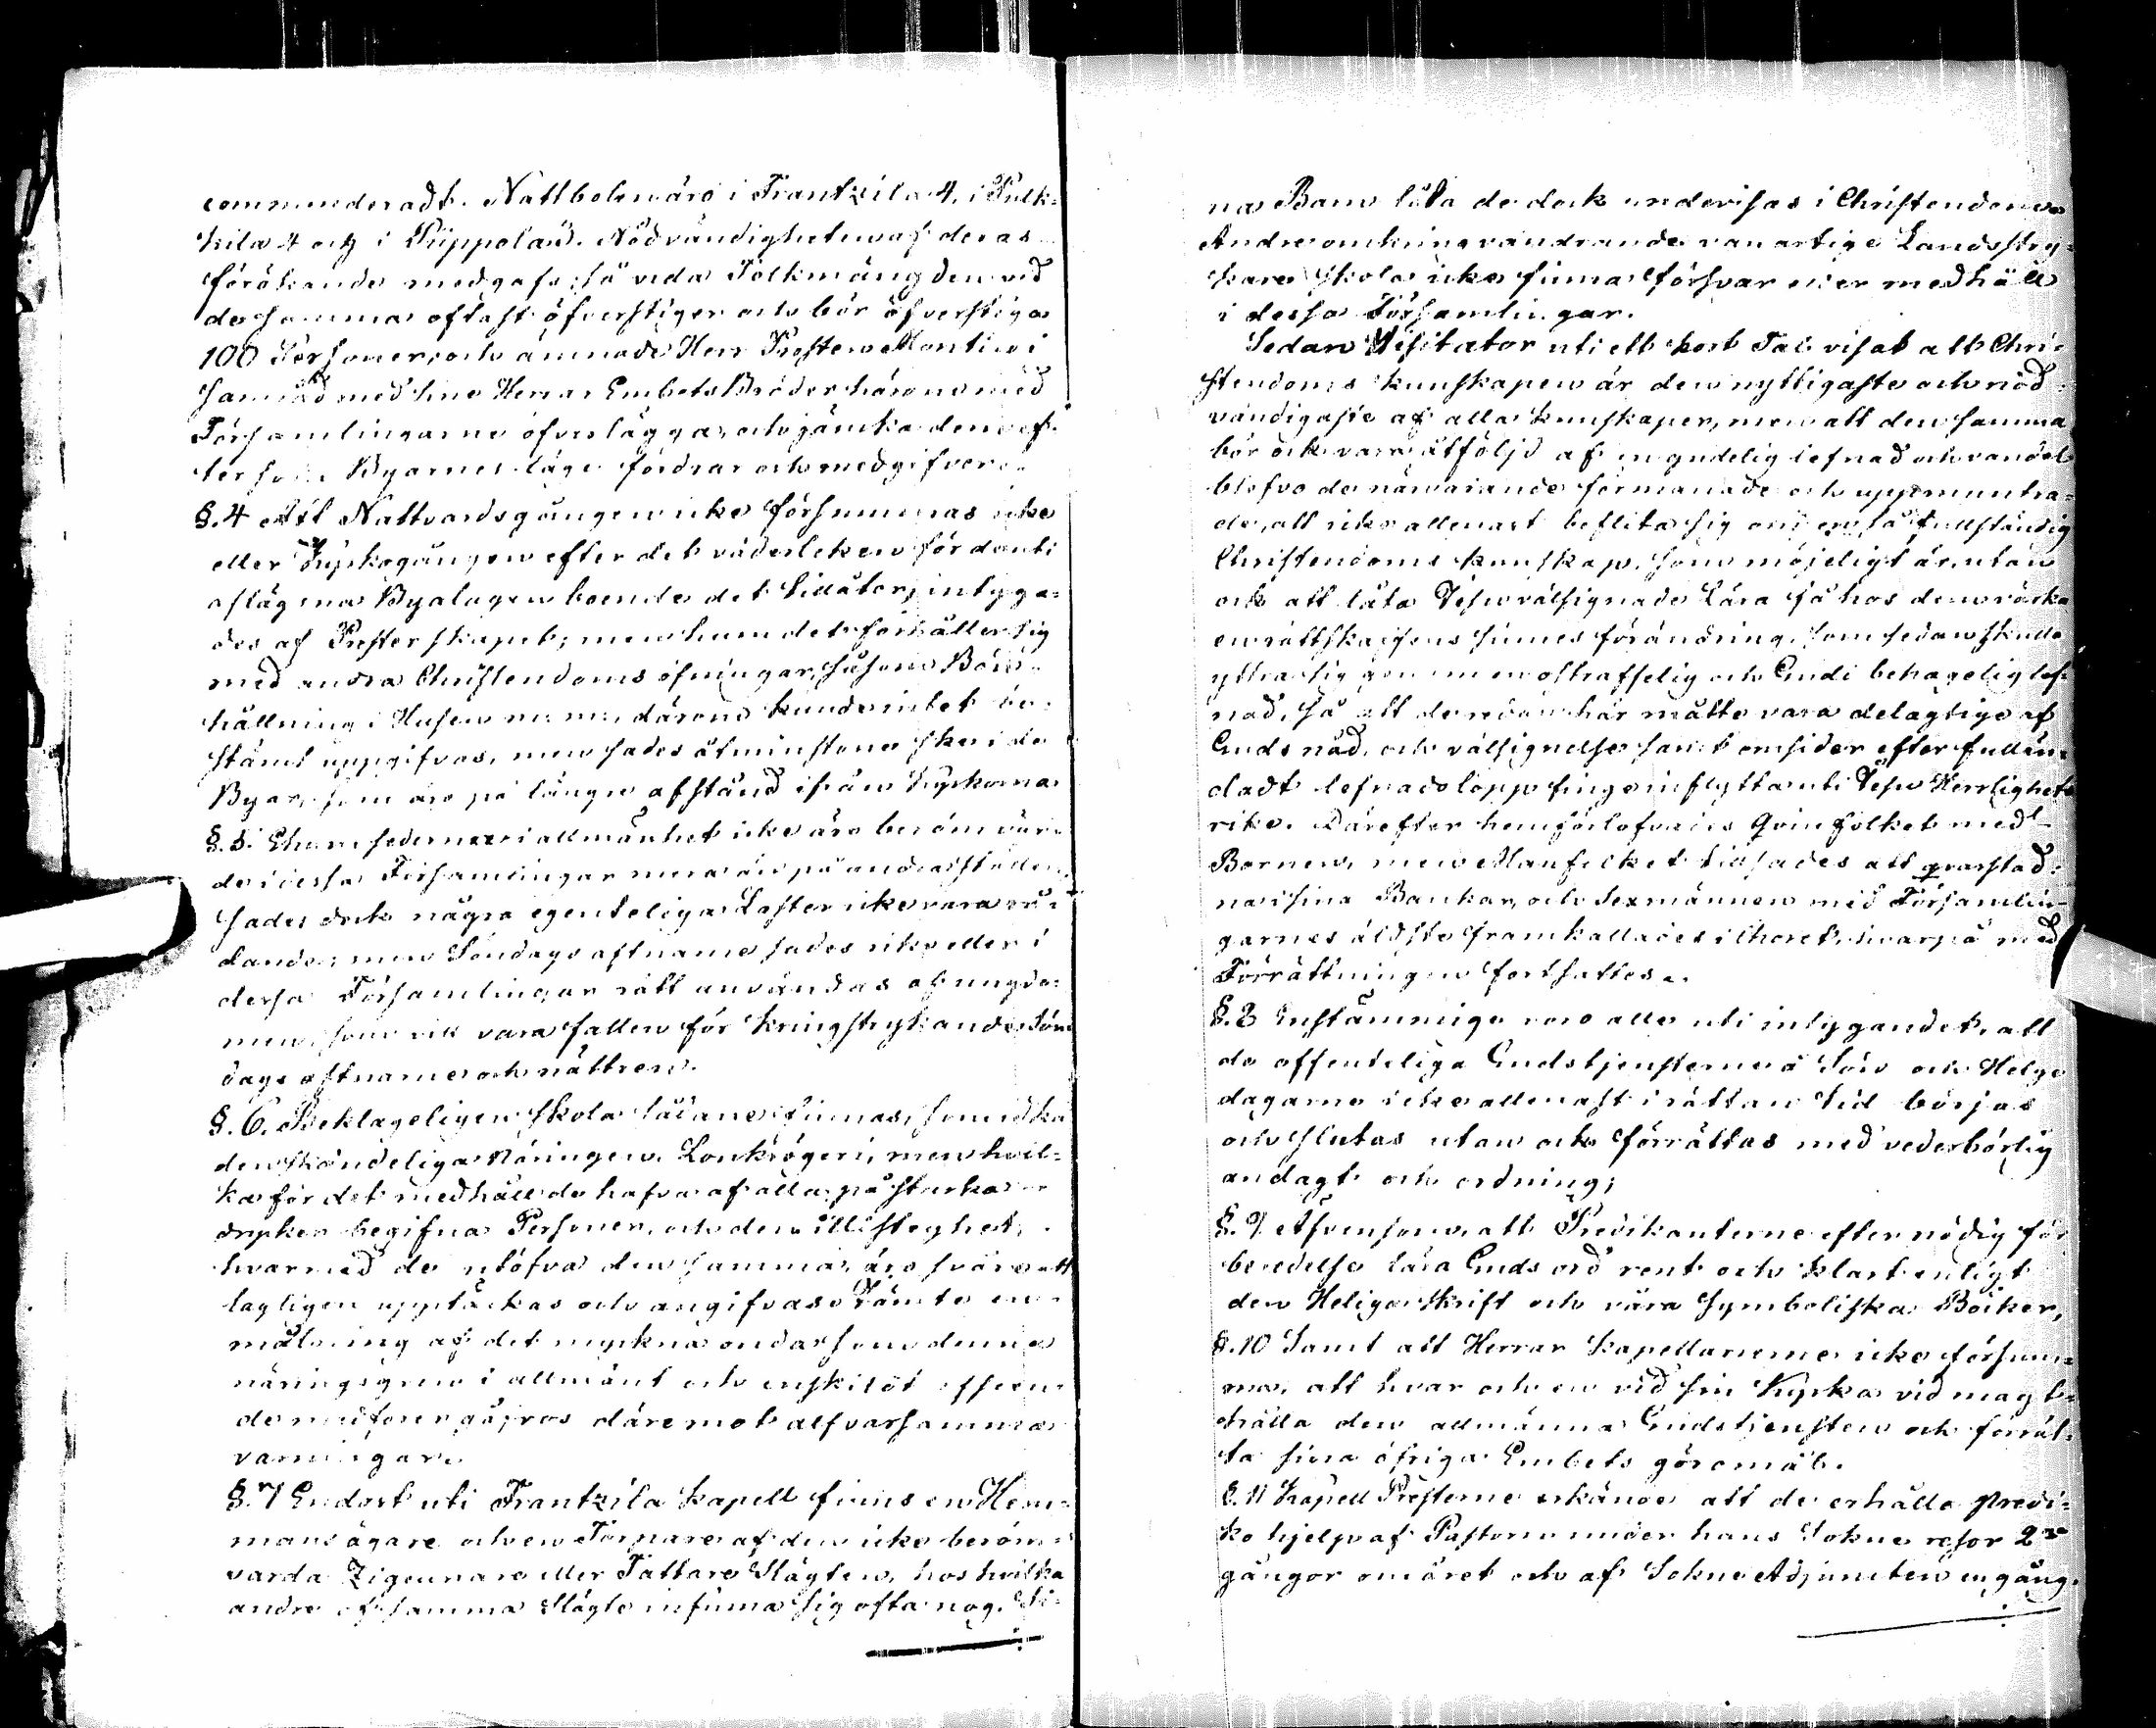 commenderadt. Nattbolen äro i Frantzila 4, i Pulk-
kila 4 och i Piippola 3. Nödvändigheten af deras
förökande medgafs, så vida Folkmängden vid
desamma oftast öfverstiger och bör öfverstiga
100 Personer, och ämnade Herr Prosten Montin i
samråd med sine Herrar Embets Bröder härom med
Församlingarne öfverlägga, och jämka dem ef-
ter som Byarnes läge fordrar och medgifver.
§. 4 Att Nattvardsgången icke försummas icke
eller Kyrkogången efter det väderleken för den ti
aflägsna Byalagen boende det tillåter, intyga-
des af Presterskapet; men huru det förhåller sig
med andra Christendoms öfningar, såsom Bön-
hållning i Husen m: m:, därom kunde intet be-
stämt uppgifvas, men sades åtminstone ske i de
Byar, som äro på längre afstånd ifrån Kyrkorna.
§. 5. Ehuru sederne i allmänhet icke äro beröm vär-
de i dessa Församlingar mera än på andra ställen,
sades dock några egenteliga Laster icke vara rå-
dande; men Söndags aftname sades icke eller i
dessa Församlingar rätt användas af ungdo-
men, som vill vara fallen för kringstrykande Sön-
dags aftname och nätter.
§. 6. Beklageligen skola sådane finnas, som idka
den skändeliga Näringen Lönkrögeri, men hvil-
ka för det medhåll de hafva af alla på starka
drycker begifna Personer, och den illistighet,
hvarmed de utöfva densamma, äro svåra att
lagligen upptäckas och angifvas. Jämte en
målning af det myckna onda som denna
näringsgren i allmänt och enskildt afseen-
de medförer gåfvos däremot alfvarsamma
varningar.
§. 7 Endast uti Frantzila Kapell finns en Hem-
mans ägare och en Torpare af den icke beröm-
varda Zigeunare eller Tattare Slägten, hos hvilka
andre af samma Slägte infinna sig ofta nog. Si-
na Barn låta de dock undervisas i Christendomen
Andre omkring vandrande vanartige Landsstry-
kare skola icke finna försvar eller medhåll
i dessa Församlingar.
Sedan Visitator uti ett kort Tal visat att Chri-
stendoms kunskapen är den nyttigaste och nöd-
vändigaste af alla kunskaper, men att densamma
bör ock vara åtföljd af en gudelig lefnad och vandel
blefvo de närvarande förmanade och uppmuntra-
de, att icke allenast beflita sig om en så fullständig
Christendoms kunskap, som möjeligt är, utan
ock att låta Jesu välsignade Lära så hos dem värka
en rättskaffens sinnes förändring, som sedan skulle
yttra sig genom en ostraffelig och Gudi behagelig lef-
nad, så att de redan här måtte vara delagtige af
Guds nåd, och välsignelse samt omsider efter fullän-
dadt lefnadslopp finge inflytta uti Jesu Herrlighets
rike. Därefter hemförlofvades Qvinfolket med
Barnen, men Manfolket tillsades att qvarstad-
na i sina Bänkar, och Sexmännen med Församlin-
garnes äldste framkallades i Choret, hvarpå med
Förrättningen fortsattes.
§. 8 Enstämmige voro alle uti intygandet, att
de offenteliga Gudstjensterne å Sön och Helge
dagarne icke allenast i rättan tid börjas
och slutas utan ock förrättas med vederbörlig
andagt och ordning;
§. 9 Äfvensom, att Predikanterne efter nödig för
beredelse lära Guds ord rent och klart enligt
den Heliga Skrift och våra Symboliska Böcker,
§. 10 Samt att Herrar Kapellanerne icke försum-
ma, att hvar och en vid sin Kyrka vid magt
hålla den allmänna Gudstjensten och förrät-
ta sina öfriga Embets göromål.
§. 11 Kapell Presterne erkände att de erhålla Predi-
ko hjelp af Pastorn under hans Sokne resor 2ne
gångor om året och af Sokne Adjuncten en gång.